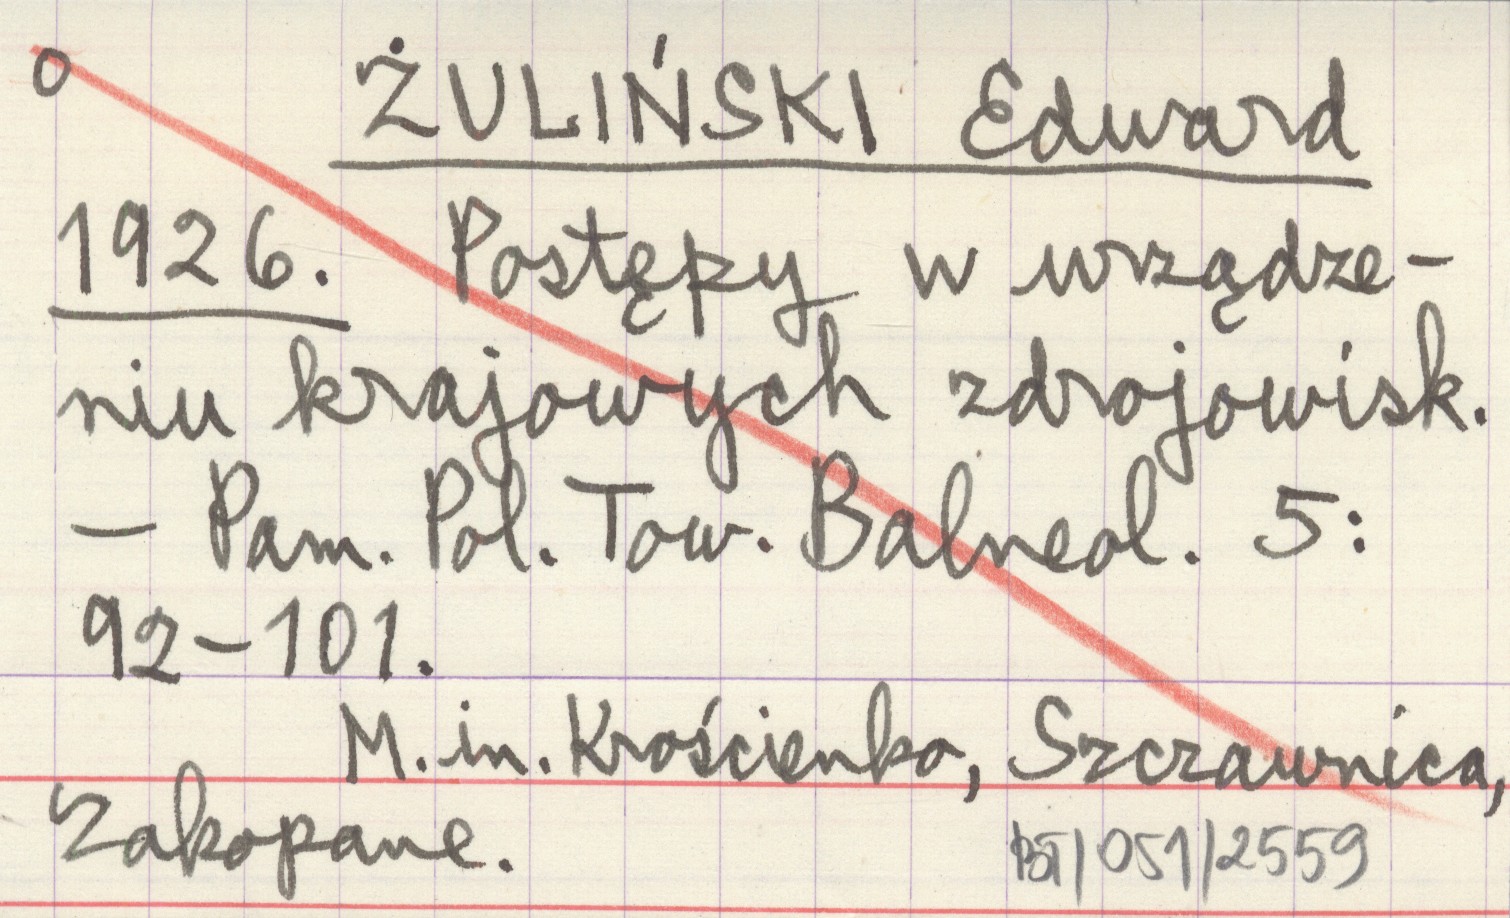 o ŻULIŃSKI Edward
1926. Postępy w urządze-
niu krajowych zdrojowisk.
— Pam. Pol. Tow. Balneol. 5:
92-101.
M. in. Krościenko, Szczawnica,
Zakopane.
BT/051/2559